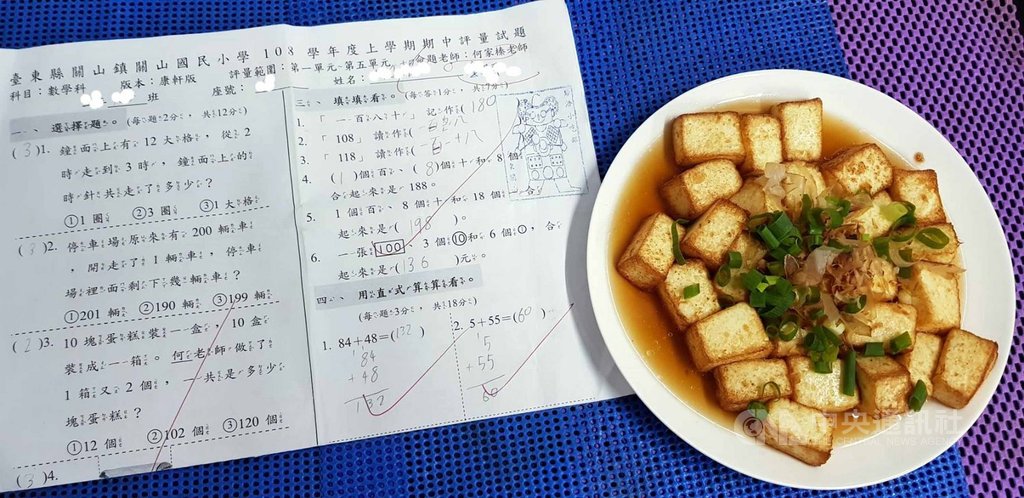 臺東縣關山鎮關山國民小學 108 學年度上學期期中評量試題
科目：數學科 版本：康軒版 評量範圍：第一單元~第五單元 命題老師：何家榛老師
班 座號： 姓名：
一、選擇題。(每題2分，共12分)
(3)1. 鐘面上有 12 大格，從 2
時走到 3 時，鐘面上的
時針共走了多少？
①1 圈 ②3 圈 ③1 大格
(3)2. 停車場原來有 200 輛車
，開走了 1 輛車，停車
場裡面剩下幾輛車？
①201 輛 ②190 輛 ③199 輛
(2)3. 10 塊蛋糕裝一盒，10 盒
裝成一箱。何老師做了
1 箱又 2 個，一共是多少
塊蛋糕？
①12 個 ②102 個 ③120 個
(3)4.
三、填填看。(每答1分，共7分)
1. 「一百八十」記作(180
2. 「108」讀作(
3. 「118」讀作(
4. (1)個百、(8)個十和 8 個一
合起來是 188。
5. 1 個百、8 個十和 18 個一合
起來是(198)。
6. 一張100、3 個⑩和 6 個①，合
起來是(136)元。
四、用直式算算看。
(每題3分，共18分)
1. 84+48=(132)
84
+48
132
2. 5+55=(60)
5
+55
60
中央通訊社
CENTRAL NEWS AGENCY